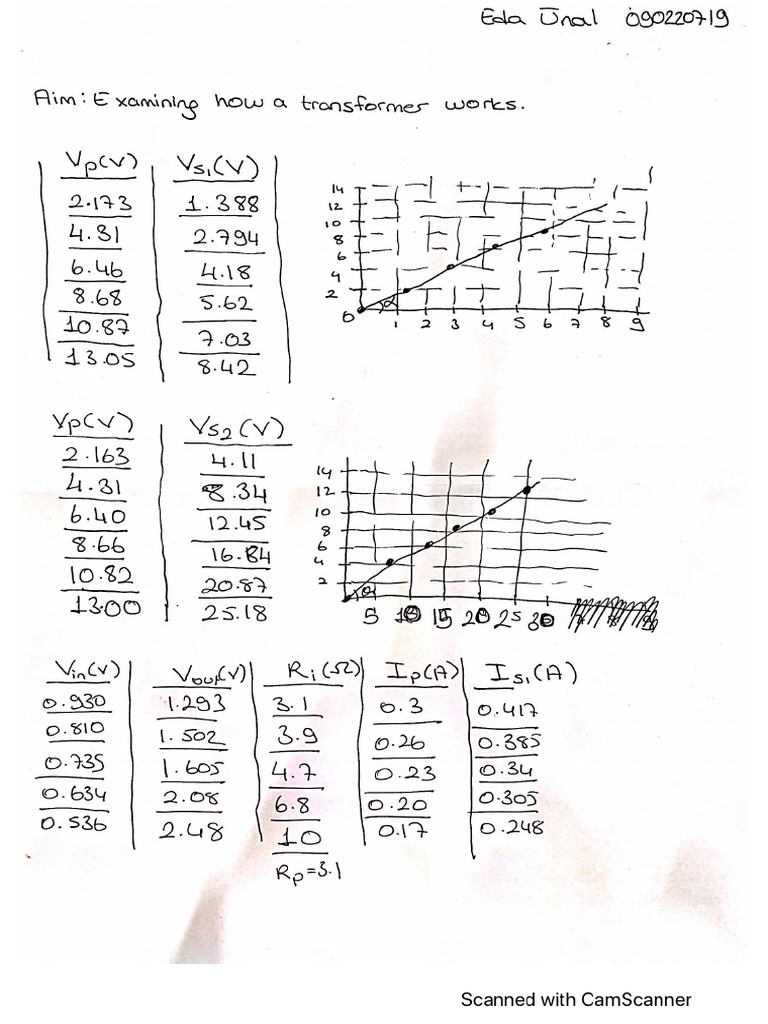 Eda Ünal 090220719
Aim: Examining how a transformer works.
Vp(V) Vs1(V)
2.173 1.388
4.31 2.794
6.46 4.18
8.68 5.62
10.87 7.03
13.05 8.42
14
12
10
8
6
4
2
0 1 2 3 4 5 6 7 8 9
α
Vp(V) Vs2(V)
2.163 4.11
4.31 8.34
6.40 12.45
8.66 16.84
10.82 20.87
13.00 25.18
14
12
10
8
6
4
2
α
5 10 15 20 25 30
Vin(V) Vout(V) Ri(Ω) Ip(A) Is1(A)
0.930 1.293 3.1 0.3 0.417
0.810 1.502 3.9 0.26 0.385
0.735 1.605 4.7 0.23 0.34
0.634 2.08 6.8 0.20 0.305
0.536 2.48 10 0.17 0.248
Rp=3.1
Scanned with CamScanner